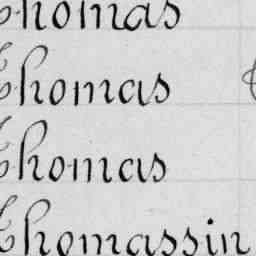 Thomas
Thomas
Thomas
Thomassin